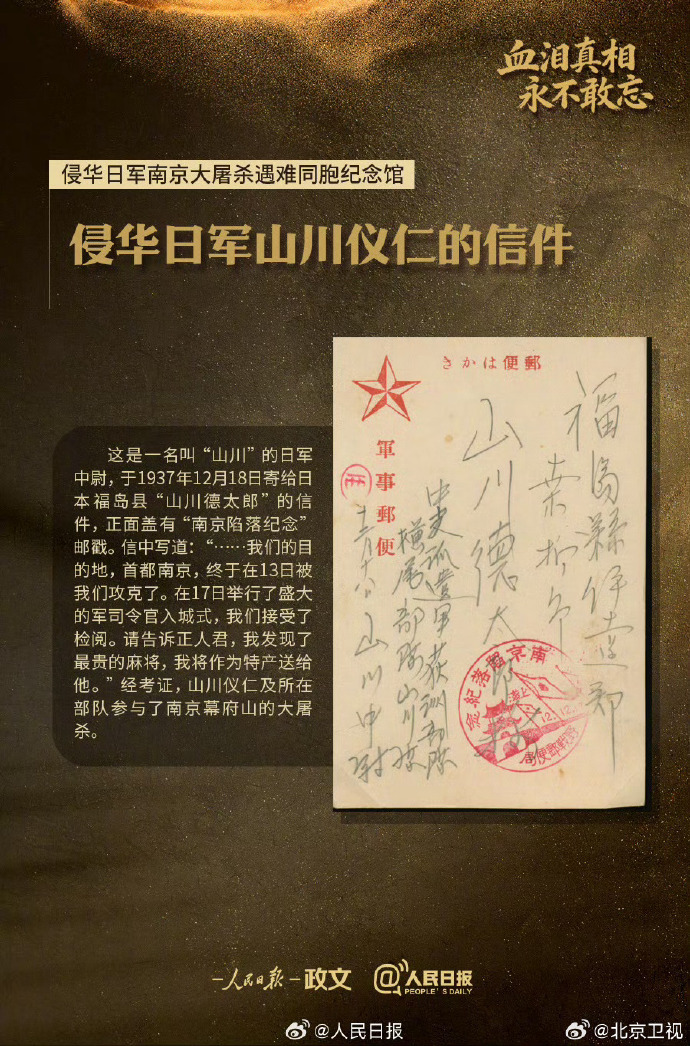 血泪真相
永不敢忘
侵华日军南京大屠杀遇难同胞纪念馆
侵华日军山川仪仁的信件
这是一名叫“山川”的日军
中尉，于1937年12月18日寄给日
本福岛县“山川德太郎”的信
件，正面盖有“南京陷落纪念”
邮戳。信中写道：“……我们的目
的地，首都南京，终于在13日被
我们攻克了。在17日举行了盛大
的军司令官入城式，我们接受了
检阅。请告诉正人君，我发现了
最贵的麻将，我将作为特产送给
他。”经考证，山川仪仁及所在
部队参与了南京幕府山的大屠
杀。
きかは便郵
福島縣伊達郡
山川德太郎
軍事郵便
中支派遣軍荻洲部隊
山川中尉
念紀落陥京南
12.12
局便郵戦野
人民日报
政文
@人民日报
PEOPLE'S DAILY
@人民日报
@北京卫视